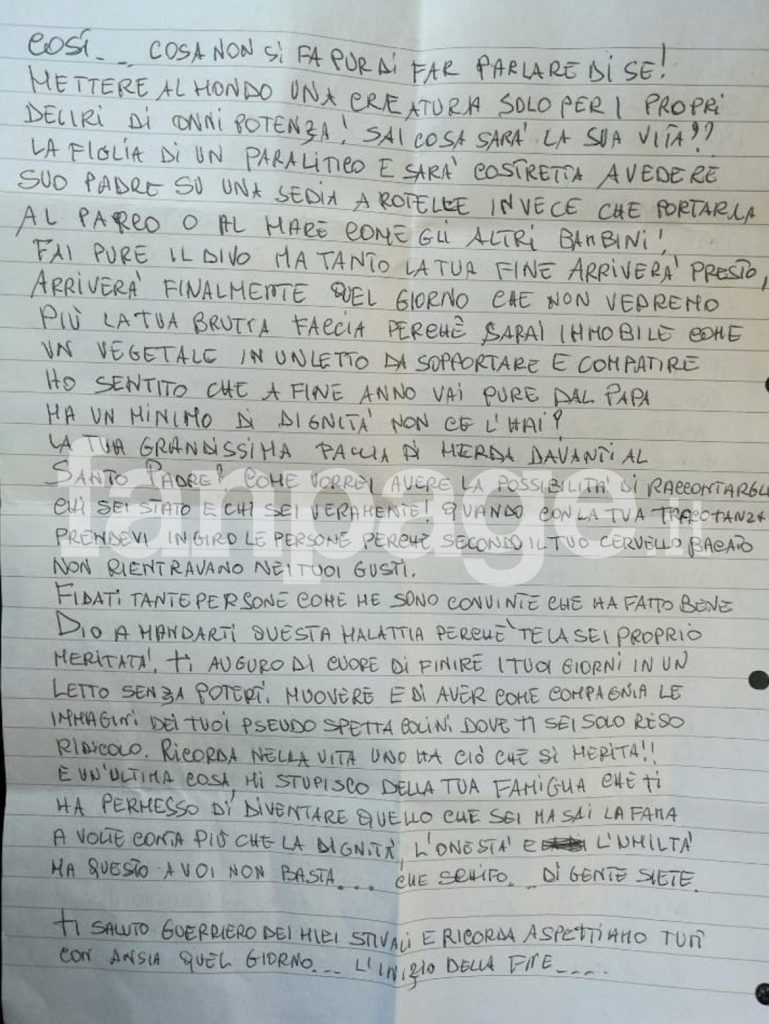 COSÍ... COSA NON SI FA PUR DI FAR PARLARE DI SE!
METTERE AL MONDO UNA CREATURA SOLO PER I PROPRI
DELIRI DI ONNIPOTENZA! SAI COSA SARÀ LA SUA VITA??
LA FIGLIA DI UN PARALITICO E SARÀ COSTRETTA A VEDERE
SUO PADRE SU UNA SEDIA A ROTELLE INVECE CHE PORTARLA
AL PARCO O AL MARE COME GLI ALTRI BAMBINI!
FAI PURE IL DIVO MA TANTO LA TUA FINE ARRIVERÀ PRESTO,
ARRIVERÀ FINALMENTE QUEL GIORNO CHE NON VEDREMO
PIÙ LA TUA BRUTTA FACCIA PERCHÈ SARAI IMMOBILE COME
UN VEGETALE IN UN LETTO DA SOPPORTARE E COMPATIRE
HO SENTITO CHE A FINE ANNO VAI PURE DAL PAPA
MA UN MINIMO DI DIGNITÀ NON CE L'HAI?
LA TUA GRANDISSIMA FACCIA DI MERDA DAVANTI AL
SANTO PADRE? COME VORREI AVERE LA POSSIBILITÀ DI RACCONTARGLI
CHI SEI STATO E CHI SEI VERAMENTE! QUANDO CON LA TUA TRACOTANZA
PRENDEVI IN GIRO LE PERSONE PERCHÈ SECONDO IL TUO CERVELLO BACATO
NON RIENTRAVANO NEI TUOI GUSTI.
FIDATI TANTE PERSONE COME ME SONO CONVINTE CHE HA FATTO BENE
DIO A MANDARTI QUESTA MALATTIA PERCHÈ TE LA SEI PROPRIO
MERITATA. TI AUGURO DI CUORE DI FINIRE I TUOI GIORNI IN UN
LETTO SENZA POTERTI MUOVERE E DI AVER COME COMPAGNIA LE
IMMAGINI DEI TUOI PSEUDO SPETTACOLINI DOVE TI SEI SOLO RESO
RIDICOLO. RICORDA NELLA VITA UNO HA CIÒ CHE SI MERITA!!
E UN'ULTIMA COSA, MI STUPISCO DELLA TUA FAMIGLIA CHE TI
HA PERMESSO DI DIVENTARE QUELLO CHE SEI MA SAI LA FAMA
A VOLTE CONTA PIÙ CHE LA DIGNITÀ, L'ONESTÀ E L'UMILTÀ
MA QUESTO A VOI NON BASTA.... CHE SCHIFO... DI GENTE SIETE
TI SALUTO GUERRIERO DEI MIEI STIVALI E RICORDA ASPETTIAMO TUTTI
CON ANSIA QUEL GIORNO.... L'INIZIO DELLA FINE.....
fanpage